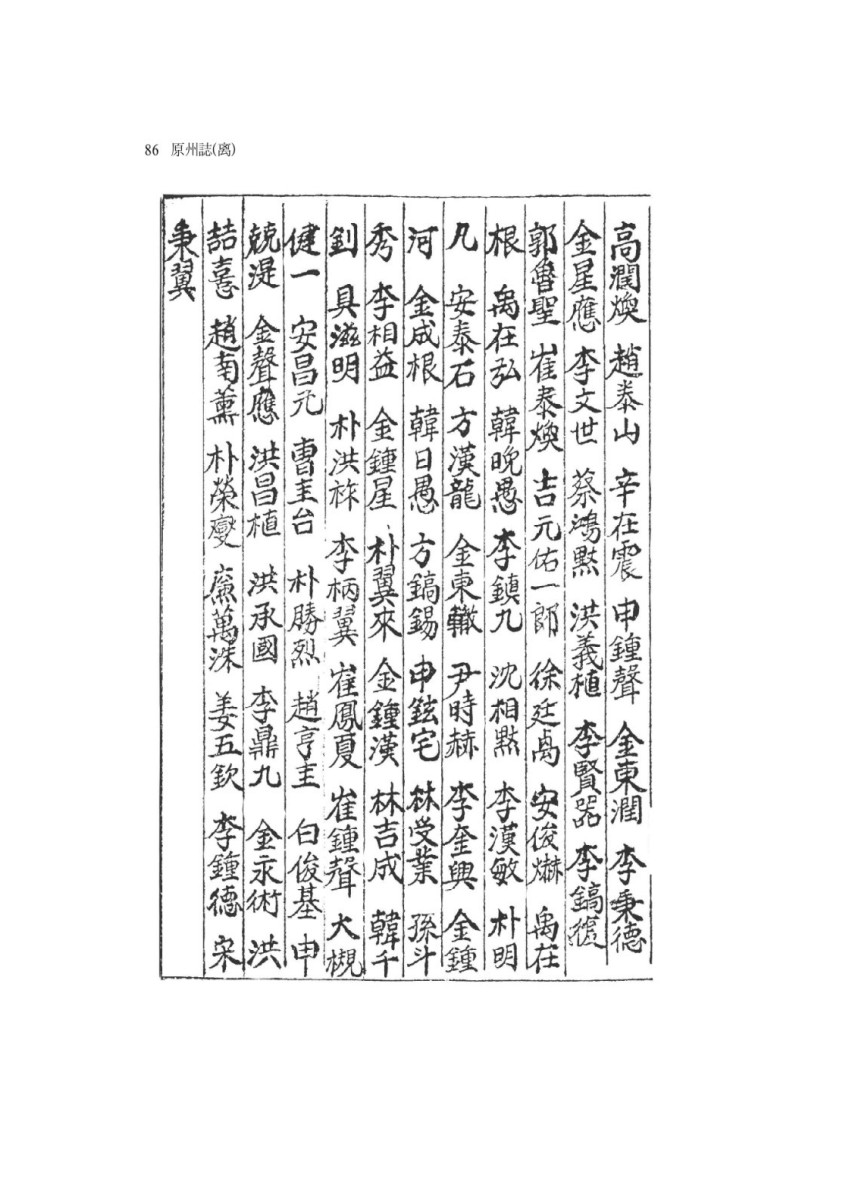 86 原州誌(离)
高潤煥 趙泰山 辛在震 申鍾聲 金東潤 李秉德
金星應 李文世 蔡鴻默 洪義植 李賢器 李鎬
郭魯聖 崔泰煥 吉元佑一郎 徐廷禹 安俊爀 禹在
根 禹在弘 韓晩愚 李鎮九 沈相默 李漢敏 朴明
凡 安泰石 方漢龍 金東轍 尹時赫 李奎興 金鍾
河 金成根 韓日愚 方鎬錫 申鉉宅 林受業 孫斗
秀 李相益 金鍾星 朴翼來 金鍾漢 林吉成 韓千
釗 具滋明 朴洪祚 李柄翼 崔鳳夏 崔鍾聲 大槻
健一 安昌元 曺圭台 朴勝烈 趙亨圭 白俊基 申
兢湜 金聲應 洪昌植 洪承國 李鼎九 金永術 洪
喆憙 趙南薰 朴榮燮 廉萬洙 姜五欽 李鍾德 宋
秉翼